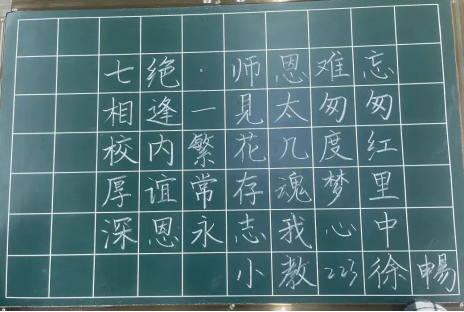 七绝·师恩难忘
相逢一见太匆匆
校内繁花几度红
厚谊常存魂梦里
深恩永志我心中
小教223徐畅